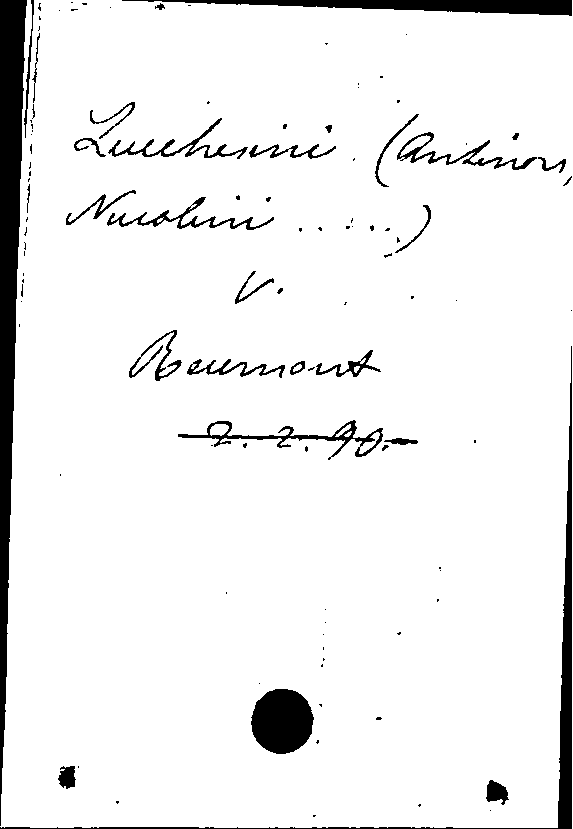 Lucchesini (Antinori,
Nicolini ......)
v.
Beaumont
2. 2. 90.